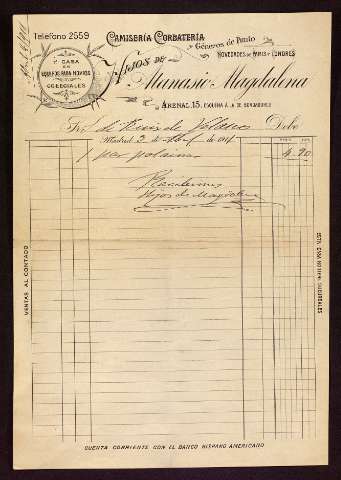 Teléfono 2559
CAMISERÍA CORBATERÍA
Géneros de Punto
NOVEDADES DE PARIS Y LONDRES
1ª CASA
EN
EQUIPOS PARA NOVIOS
Y
COLEGIALES
HIJOS DE
Atanasio Magdalena
ARENAL, 15, ESQUINA Á LA DE BORDADORES
Debe
Madrid 3 de de 191
1 par 4,90
Recibimos
Hijos de Magdalena
VENTAS AL CONTADO
ESTA CASA NO TIENE SUCURSALES
CUENTA CORRIENTE CON EL BANCO HISPANO AMERICANO